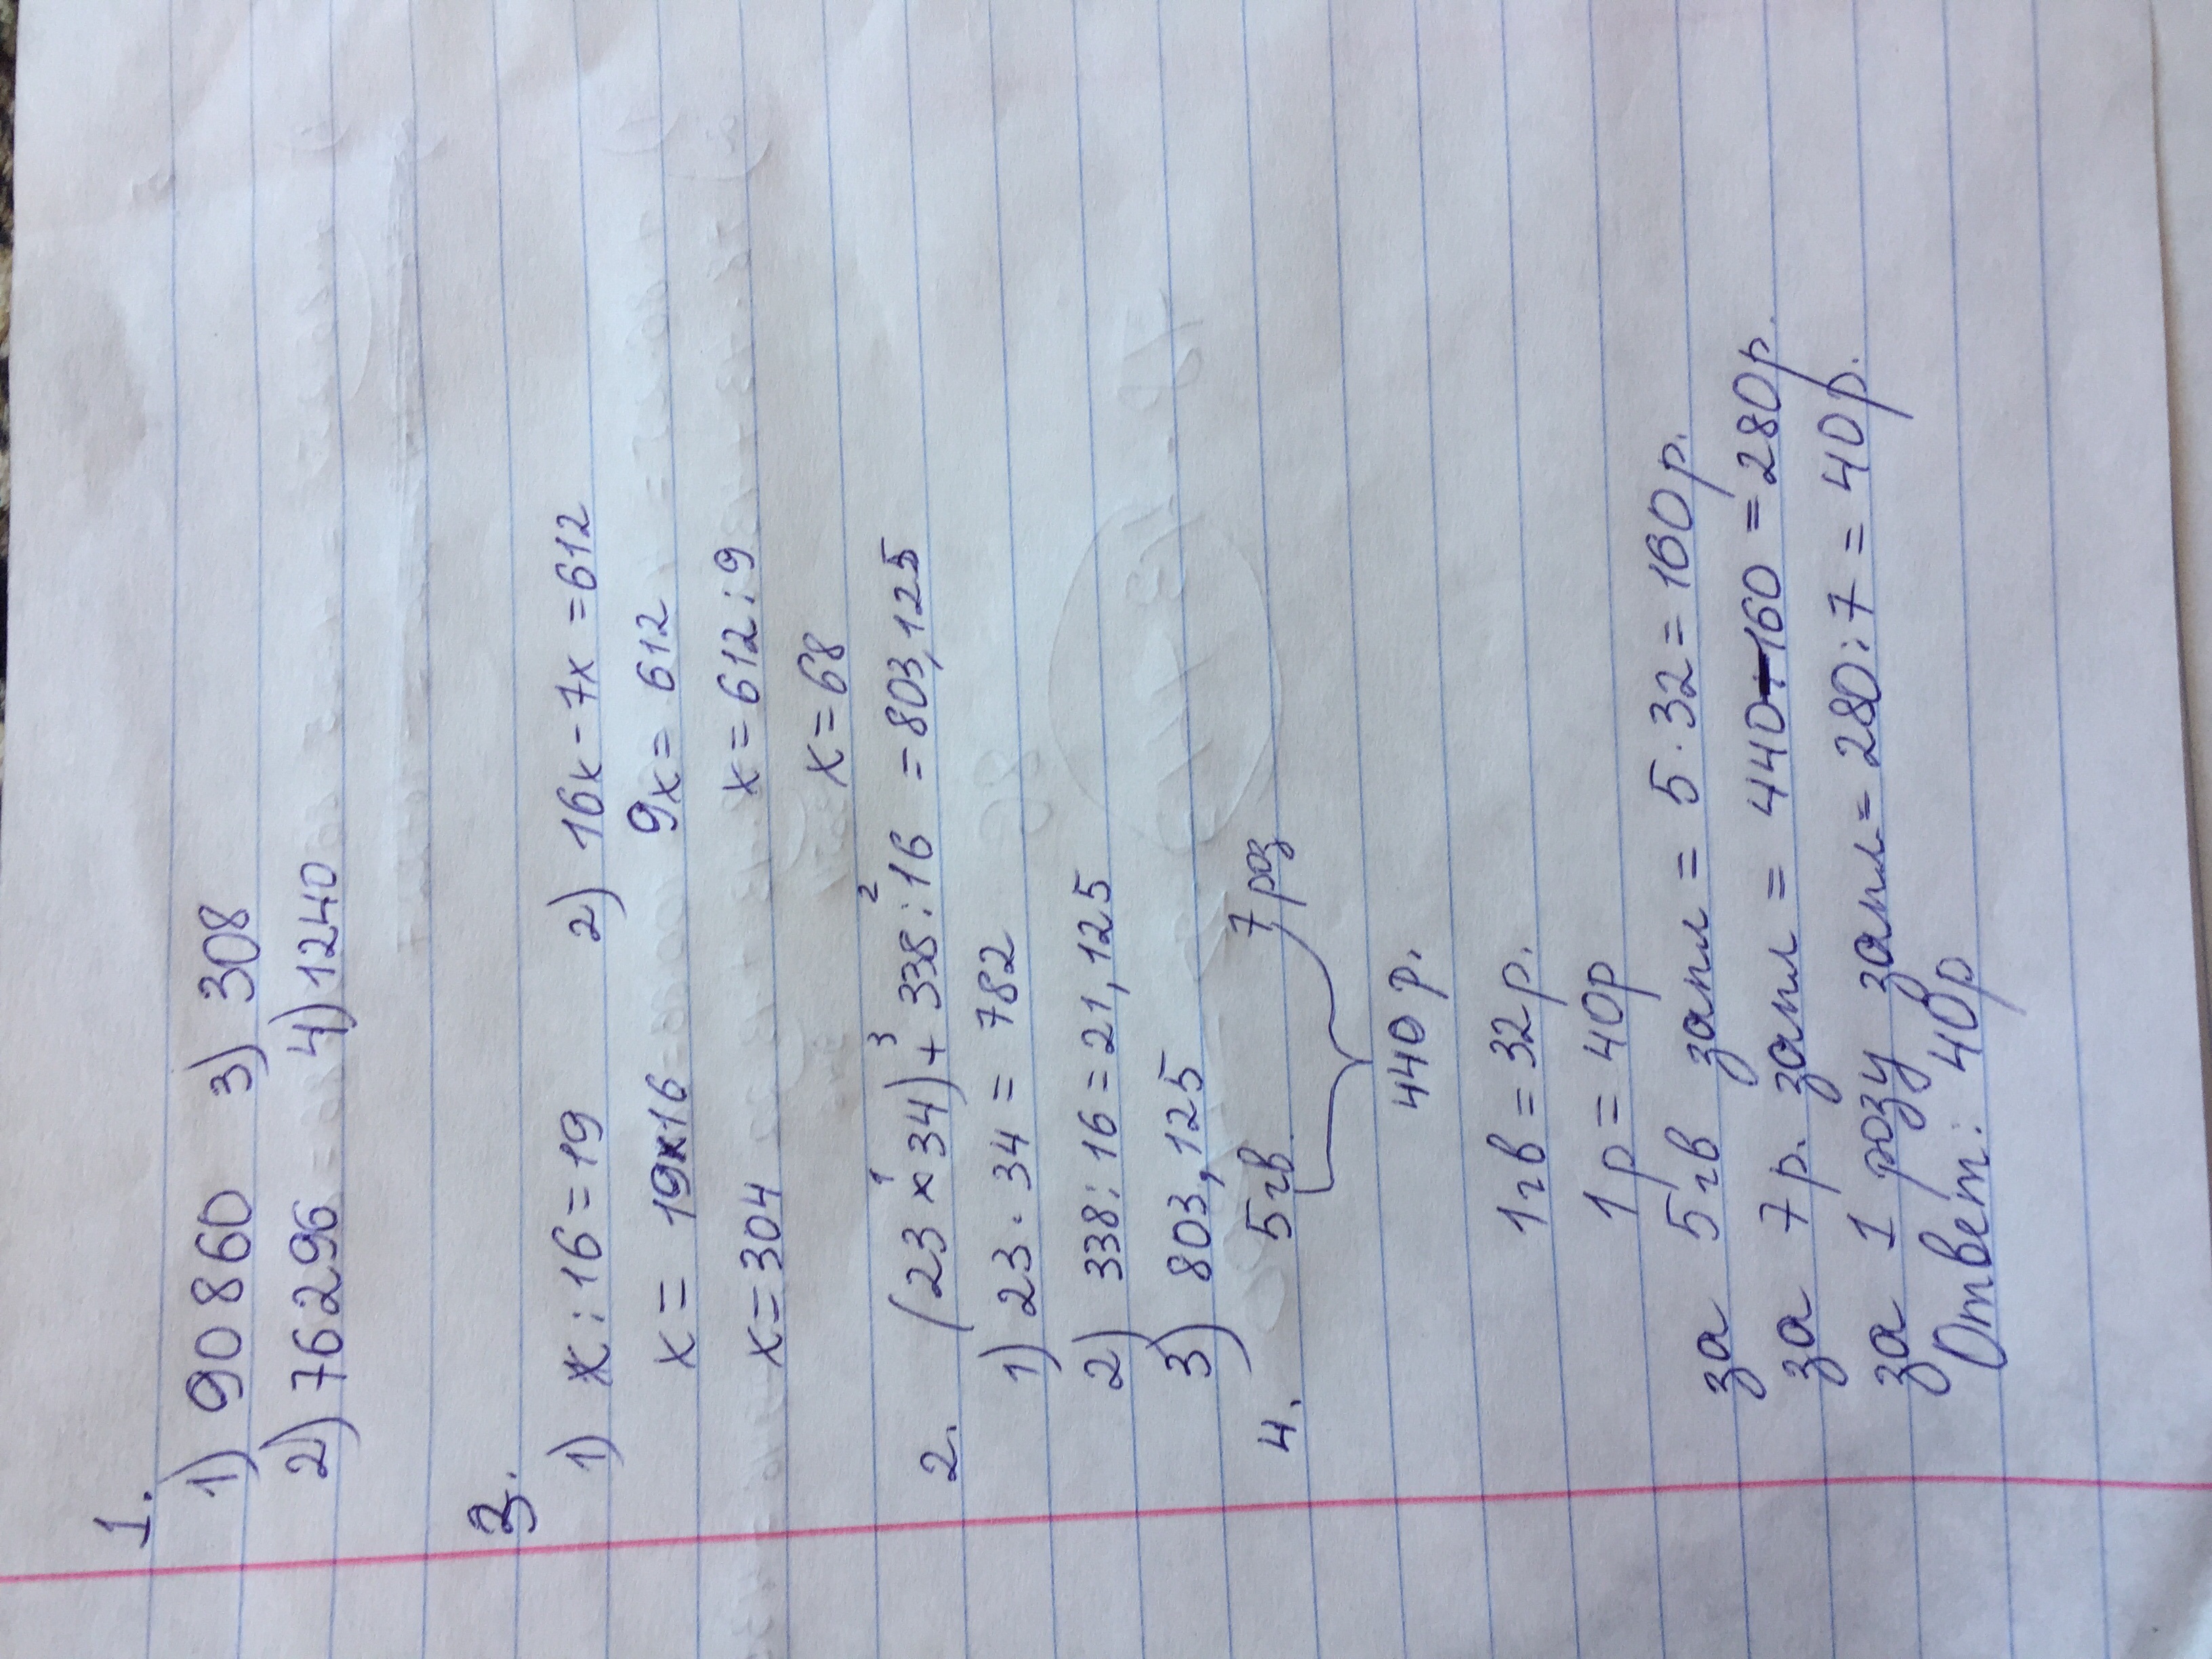 1.
1) 90 860 3) 308
2) 76 296 4) 1240
3.
1) x : 16 = 19 2) 16x - 7x = 612
x = 19x16 9x = 612
x = 304 x = 612 : 9
x = 68
2. (23 x¹ 34) +³ 338 :² 16 = 803,125
1) 23 · 34 = 782
2) 338 : 16 = 21,125
3) 803,125
4. 5 гв. 7 роз
440 р.
1 гв = 32 р.
1 р = 40 р
за 5 гв запл = 5 · 32 = 160 р.
за 7 р. запл = 440 - 160 = 280 р.
за 1 розу запл = 280 : 7 = 40 р.
Ответ: 40 р